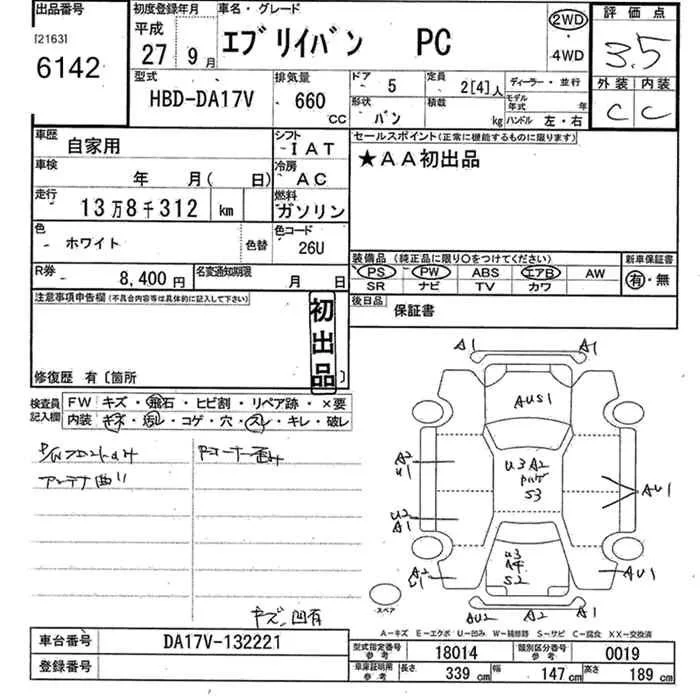 出品番号
[2163]
6142
初度登録年月
平成
27年 9月
車名・グレード
エブリイバン PC
2WD
・
4WD
評価点
3.5
外装 内装
C C
型式
HBD-DA17V
排気量
660
CC
ドア 5
定員 2[4]人
形状 バン
積載 kg
ディーラー・並行
モデル年式 年
ハンドル 左・右
車歴 自家用
シフト IAT
車検 年 月( 日)
冷房 AC
走行 13万8千312 km
燃料 ガソリン
色 ホワイト
色替
色コード 26U
R券 8,400円
名変通知期限 月 日
セールスポイント(正常に機能するものに限ります)
★AA初出品
装備品 (純正品に限り○をつけてください)
新車保証書
PS PW ABS エアB AW
SR ナビ TV カワ
有・無
後日品 保証書
注意事項申告欄(不具合内容等は具体的に記入して下さい)
初出品
修復歴 有〔箇所 〕
検査員記入欄
FW キズ・飛石・ヒビ割・リペア跡・×要
内装 キズ・汚レ・コゲ・穴・スレ・キレ・破レ
アンテナ曲り
キズ、凹有
A1 A1
AUS1
A2
U1
U3 A2
S3
AU1
U2
A1
U3
A4
S2
A2
U1
AU1
スペア
AU2 A2 A1
A-キズ E-エクボ U-凹み W-補修跡 S-サビ C-腐食 XX-交換済
車台番号 DA17V-132221
登録番号
型式指定番号 参考 18014
類別区分番号 参考 0019
車庫証明用 参考 長さ 339 cm 幅 147 cm 高さ 189 cm